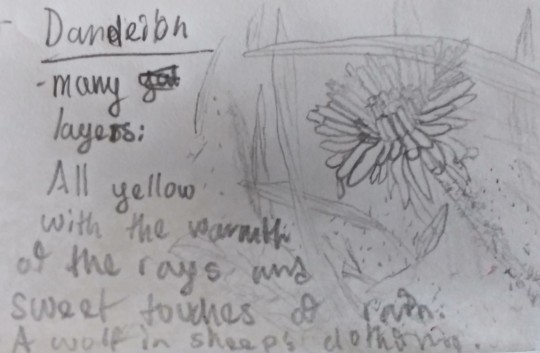 Dandelion
- many
layers:
All yellow
with the warmth
of the rays and
sweet touches of rain.
A wolf in sheeps clothing.